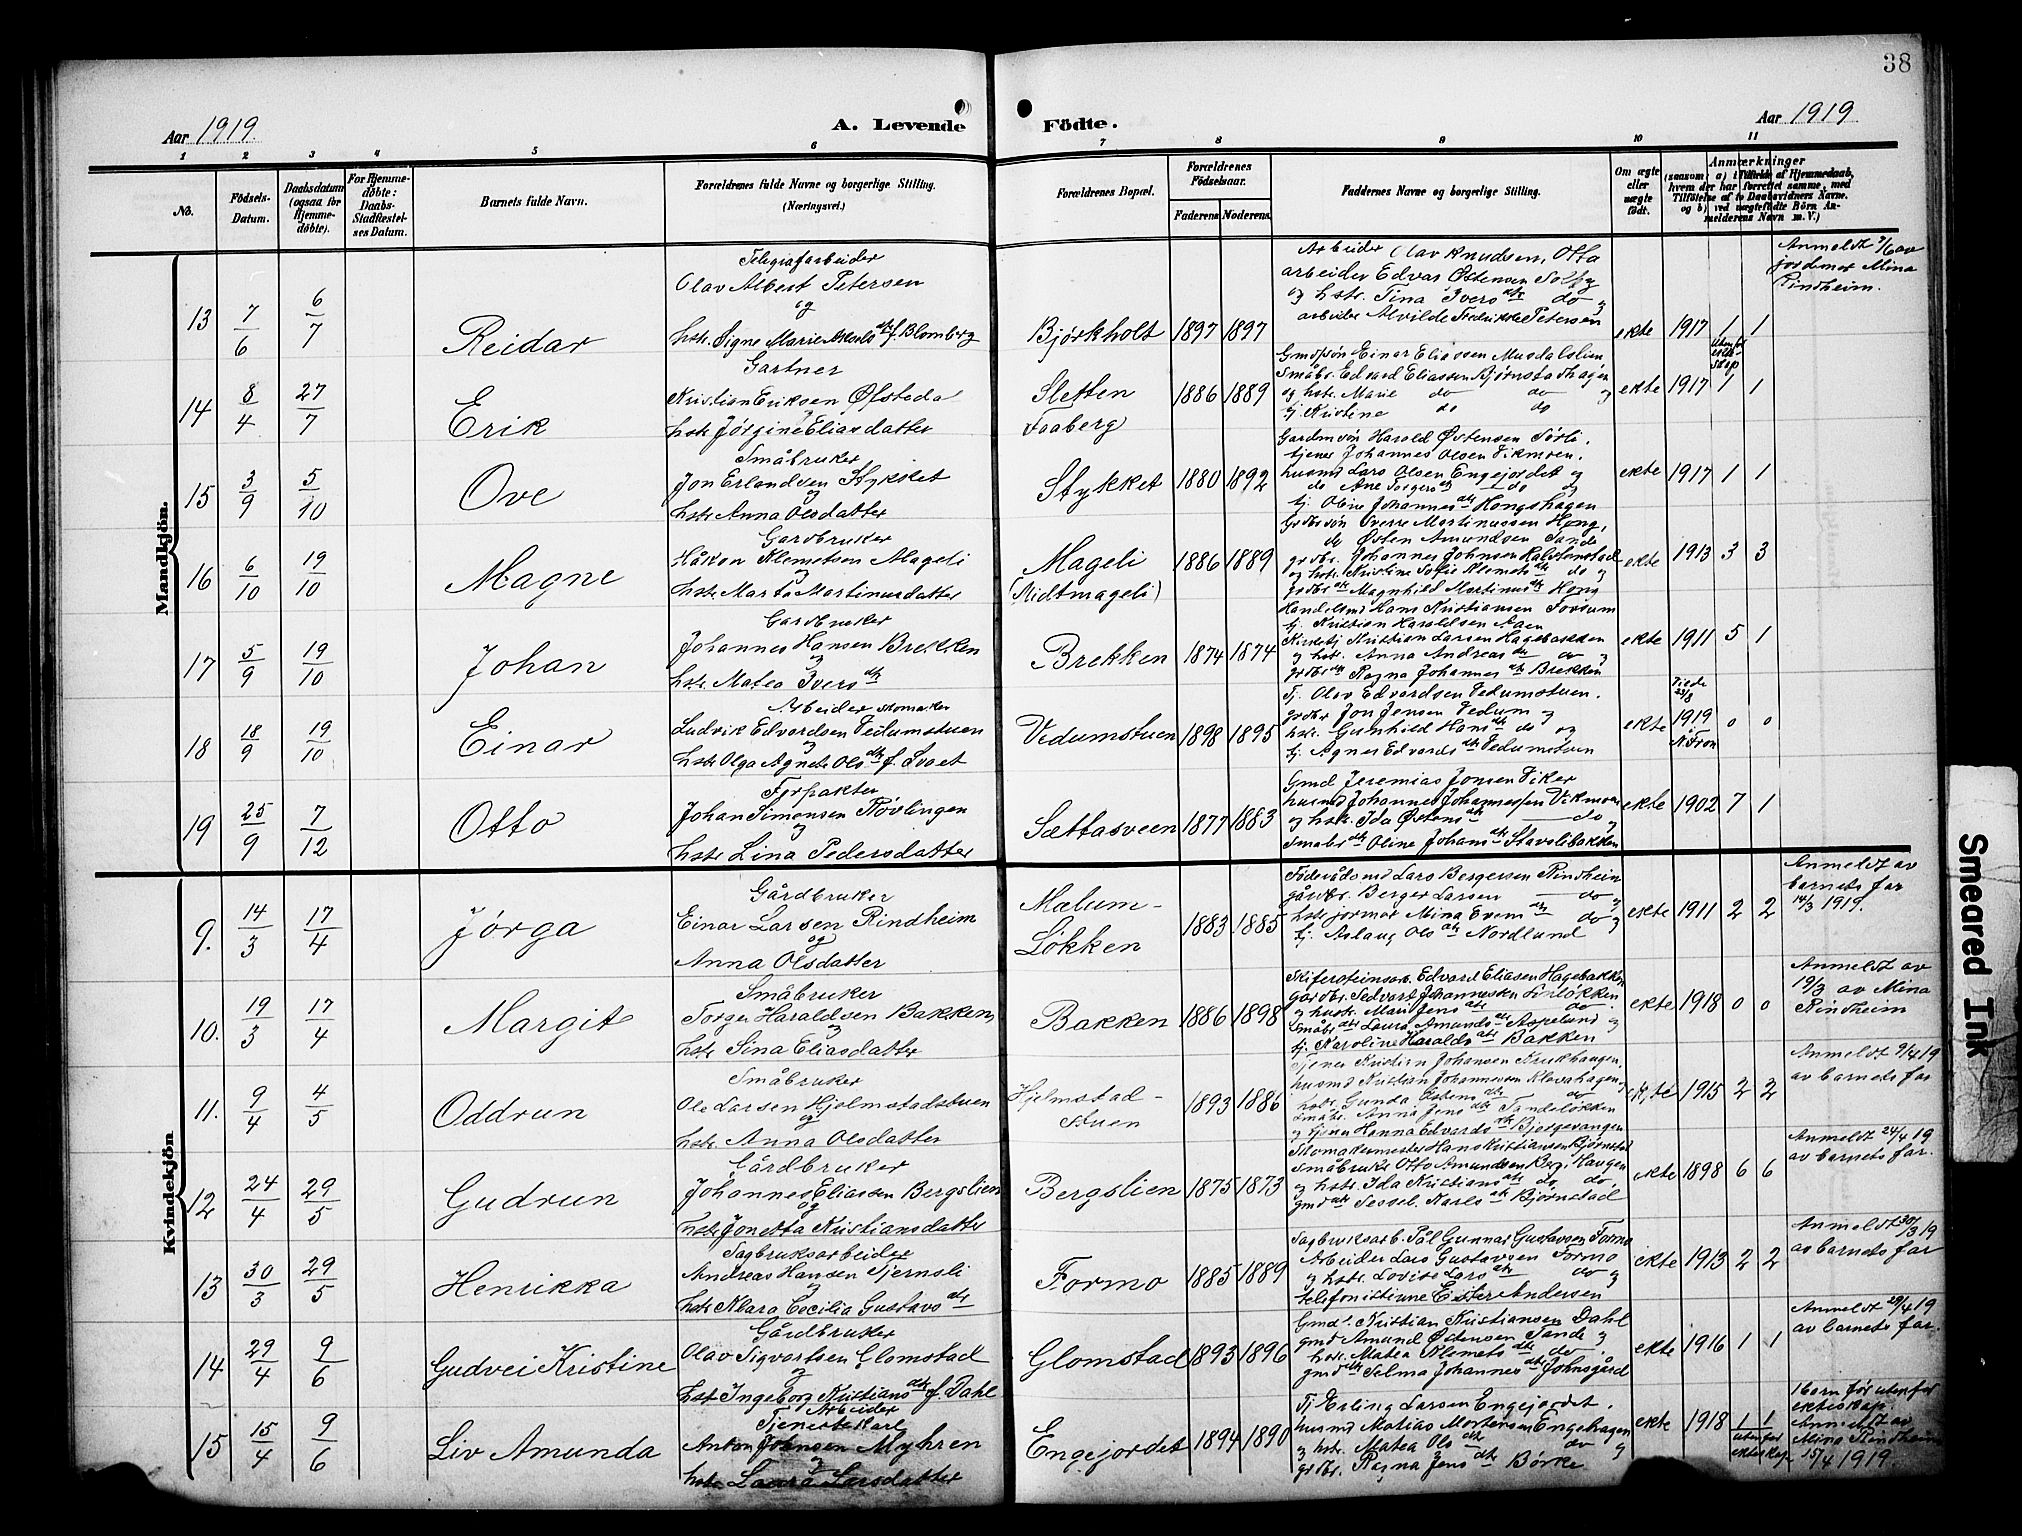 38
Aar 1919.
A. Levende
Födte.
Aar 1919
1 2 3 4 5 6 7 8 9 10 11
No.
Födsels-
Datum.
Daabsdatum
(ogsaa for
Hjemme-
döbte).
For Hjemme-
döbte:
Daabs-
Stadfestel-
ses Datum.
Barnets fulde Navn.
Forældrenes fulde Navne og borgerlige Stilling.
(Næringsvei.)
Forældrenes Bopæl.
Forældrenes
Födselsaar.
Faderens.
Moderens.
Faddernes Navne og borgerlige Stilling.
Om ægte
eller
uægte
födt.
Anmærkninger
(saasom: a) i Tilfælde af Hjemmedaab,
hvem der har forrettet samme, med
Tilföielse af to Daabsvidners Navne.
og b) ved uægtefödte Börn An-
melderens Navn m. V.)
Mandkjön.
13 7/6 6/7 Reidar
Telegrafarbeider
Olav Albert Petersen
og
hstr. Signe Marie Aksels dtr f. Blomberg
Bjørkholt 1897 1897
Arbeider Olav Knudsen, Otta
arbeider Edvar Østensen Solby
og hstr. Tina Ivers dtr do og
arbeider Alvilde Fredrikke Petersen
ekte 1917 1 1
Anmeldt 9/6 av
jordemor Mina
Rindheim.
14 8/4 27/7 Erik
Gartner
Kristian Eriksen Øfstedal
og
hstr Jørgine Eliasdatter
Sletten
Faaberg
1886 1889
Gmdssøn Einar Eliassen Musdalslien
Småbr. Edvard Eliassen Bjørnstadhagen
og hstr. Marie do do og
tj. Kristine do do
ekte 1917 1 1
utenfor
ekte-
skap
15 3/9 5/10 Ove
Småbruker
Jon Erlandsen Stykket
og
hstr Anna Olsdatter
Stykket 1880 1892
Gardmsøn Harald Østensen Sørli.
tjener Johannes Olsen Vikmoen.
husmd Lars Olsen Engejordet og
do Ane Torgers dtr do og
tj. Oline Johannes dtr Hongshagen
ekte 1917 1 1
16 6/10 19/10 Magne
Gardbruker
Håkon Klemetsen Mageli
og
hstr Marta Martinusdatter
Mageli
(Midtmageli)
1886 1889
Grdbrsøn Sverre Martinussen Hong,
do Østen Amundsen Sande
grdbr. Johannes Johnsen Kalstanstad
og hstr. Kristine Sofie Klemets dtr do og
grdbr dtr Magnhild Martinus dtr Hong
ekte 1913 3 3
17 5/9 19/10 Johan
Gardbruker
Johannes Hansen Brekken
og
hstr. Matea Ivers dtr
Brekken 1874 1874
Handelsmd Hans Kristiansen Forsum
tj. Kristian Haraldsen Aaen
Kirketj Kristian Larsen Hagebakken
og hstr. Anna Andreas dtr do og
grdbr dtr Ragna Johannes dtr Brekken
ekte 1911 5 1
18 18/9 19/10 Einar
Arbeider skomaker
Ludvik Edvardsen Vedumstuen
og
hstr Olga Agnete Ols dtr f. Svaet
Vedumstuen 1898 1895
Tj. Olav Edvardsen Vedumstuen.
grdbr Jon Jensen Vedum og
hstr. Gunhild Hans dtr do og
tj. Agnes Edvards dtr Vedumstuen
ekte
Viede
23/8
1919
N. Fron
0 0
19 25/9 7/12 Otto
Forpakter
Johan Simensen Røvlingen
og
hstr Lina Pedersdatter
Sættasveen 1877 1883
Gmd Jeremias Jonsen Viker
husmd Johannes Johannessen Vikmoen
og hstr. Ida Østens dtr do og
Småbr dtr Oline Johans dtr Stavslibakken
ekte 1902 7 1
Kvindekjön
9. 14/3 17/4 Jørga
Gårdbruker
Einar Larsen Rindheim
og
Anna Olsdatter
Mælum-
Løkken
1883 1885
Føderådsmd Lars Bergersen Rindheim
gårdbr. Berger Larsen do og
hstr. jormor Mina Evens dtr do og
tj. Aslaug Ols dtr Nordlund
ekte 1911 2 2
Anmeldt av
barnets far
14/3 1919.
10. 19/3 17/4 Margit
Småbruker
Torger Haraldsen Bakken,
og
hstr Sina Eliasdatter
Bakken 1886 1898
Skifersteinsarb. Edvard Eliasen Hagebakken
gårdbr. Sedvart Johannessen Linløkken
og hustr. Mari Jens dtr do
Småbr dtr Laura Amunds dtr Aspelund og
tj. Karoline Haralds dtr Bakken
ekte 1918 0 0
Anmeldt av
19/3 av Mina
Rindheim
11. 9/4 4/5 Oddrun
Småbruker
Ole Larsen Hjelmstadstuen
og
hstr. Anna Olsdatter
Hjelmstad-
stuen
1893 1886
Tjener Kristian Johansen Krukhaugen,
husmd Kristian Johannessen Klevahagen,
hstr. Gunda Østens dtr do
småbr. Anna Jens dtr Sandeløkken
og tjener Hanna Edvards dtr Bjørgevangen
ekte 1915 2 2
Anmeldt 9/4 19
av barnets far
12 24/4 29/5 Gudrun
Gårdbruker
Johannes Eliassen Bergslien
og
hstr. Jonetta Kristiansdatter
Bergslien 1875 1873
Skomakermester Hans Kristiansen Bjørnstad
Småbruker Otto Amundsen Berg, Haugen
og hstr. Ida Kristians dtr do do,
gmd dtr Sessel Karls dtr Bjørnstad
ekte 1898 6 6
Anmeldt 24/4 19
av barnets far.
13 30/3 29/5 Henrikka
Sagbruksarbeider
Andreas Hansen Tjernsli
hstr Klara Cecilia Gustavs dtr
Formo 1885 1889
Sagbruksarb. Pål Gunnar Gustavsen Formo
Arbeider Lars Gustavsen Formo
og hstr. Lovise Lars dtr do og
telefonistinne Ester Andersen
ekte 1913 2 2
Anmeldt 30/3 19
av barnets far
14 29/4 9/6 Gudvei Kristine
Gårdbruker
Olav Sigvartsen Glomstad
og
hstr Ingeborg Kristians dtr f. Dahl
Glomstad 1893 1896
Gmd. Kristian Kristiansen Dahl
gmd Amund Østensen Sande og
hstr. Matea Klemets dtr do
gmd dtr Selma Johannes dtr Johnsgård
ekte 1916 1 1
Anmeldt 29/4 19
av barnets far.
15 15/4 9/6 Liv Amunda
Arbeider
Tjenestekarl
Anton Johnsen Myhren
og
hstr Laura Larsdatter
Engejordet 1894 1890
Tj Erling Larsen Engejordet.
husmd Matias Mortensen Engehagen
og hstr. Matea Ols dtr do og
grdbr. Ragna Jens dtr Børke
ekte 1918 1 1
utenfor
ekteskap
1 barn før utenfor
ekteskap.
Anmeldt av
Mina Rindheim
15/4 1919.
Smeared Ink